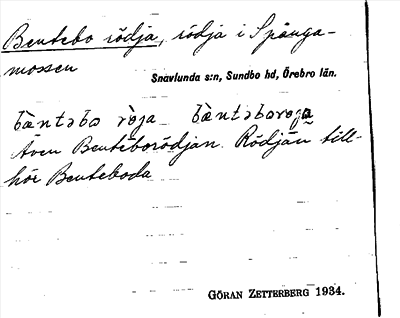 Bentebo rödja, rödja i Spånga-
mossen
Snavlunda s:n, Sundbo hd, Örebro län.
bæ̀ntəbo
Även Benteborödjan. Rödjan till-
hör Benteboda
GÖRAN ZETTERBERG 1934.